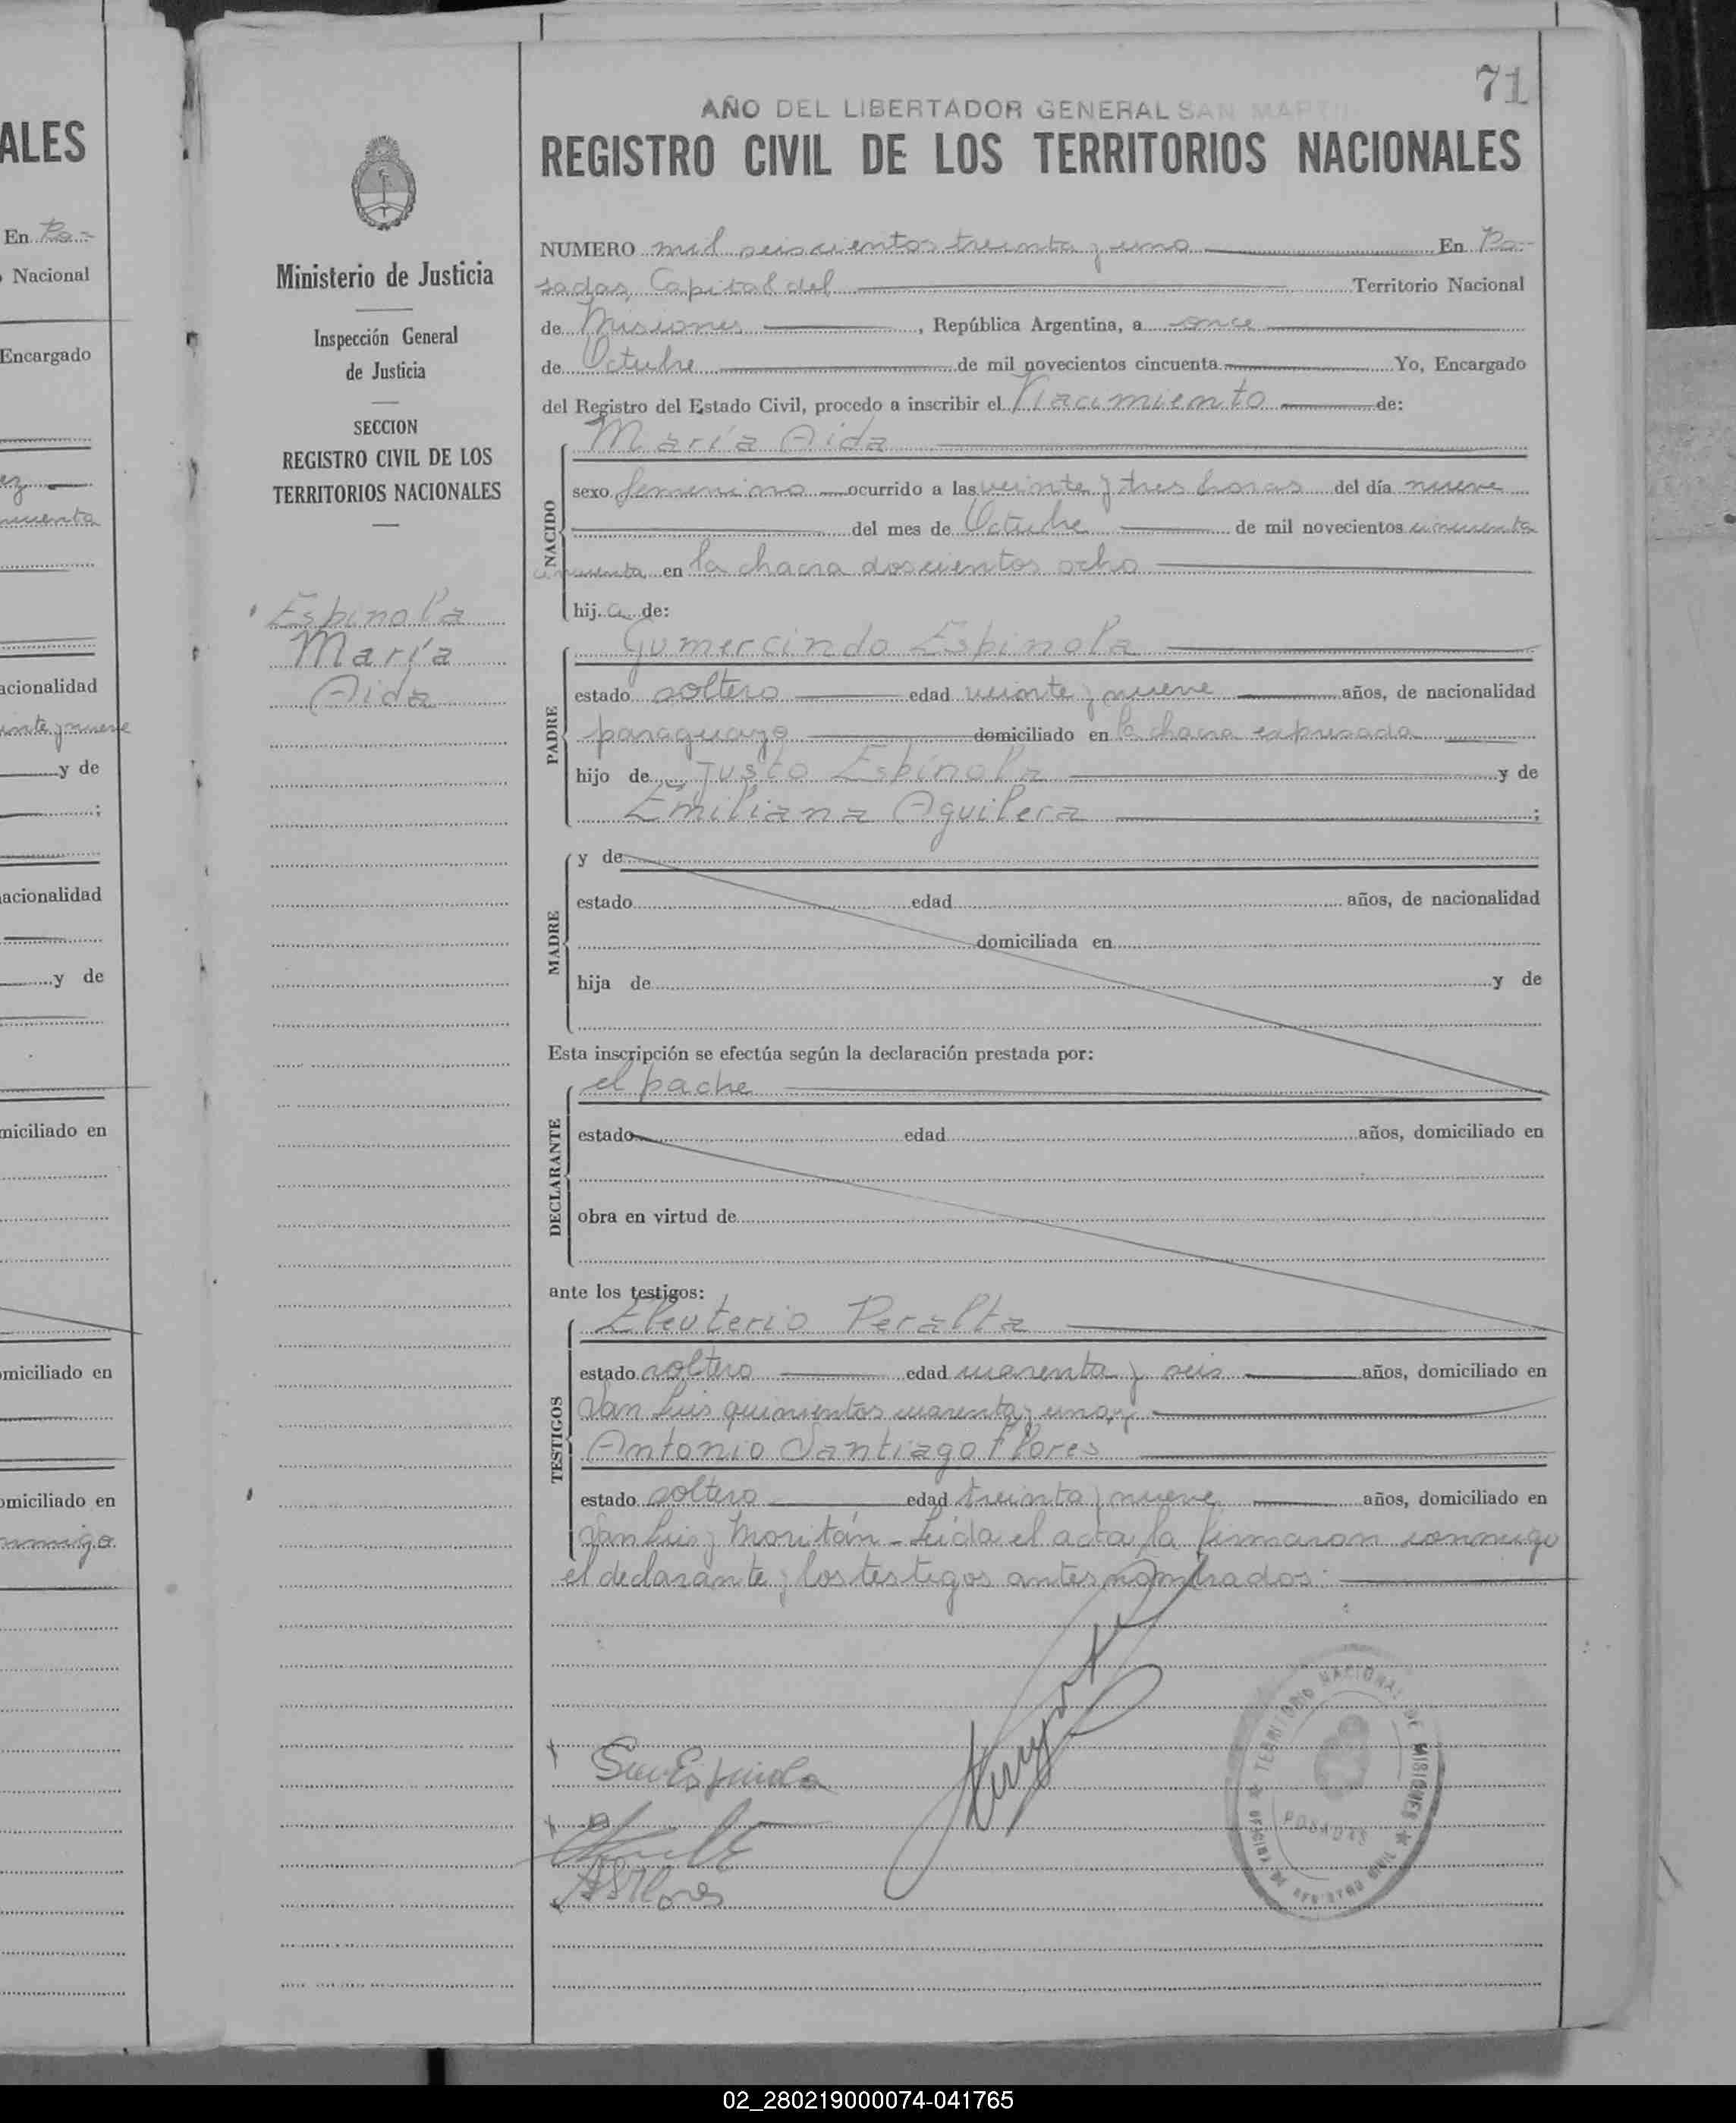 71
AÑO DEL LIBERTADOR GENERAL SAN MARTIN
REGISTRO CIVIL DE LOS TERRITORIOS NACIONALES
Ministerio de Justicia
Inspección General
de Justicia
SECCION
REGISTRO CIVIL DE LOS
TERRITORIOS NACIONALES
Espinola
María
Aida
NUMERO mil seiscientos treinta y uno En Po-
sadas, Capital del Territorio Nacional
de Misiones, República Argentina, a once
de Octubre de mil novecientos cincuenta Yo, Encargado
del Registro del Estado Civil, procedo a inscribir el Nacimiento de:
María Aida
NACIDO
sexo femenino ocurrido a las veinte y tres horas del día nueve
del mes de Octubre de mil novecientos cincuenta
cincuenta en la chacra doscientos ocho
hija de:
Gumercindo Espinola
PADRE
estado soltero edad veinte y nueve años, de nacionalidad
paraguayo domiciliado en la chacra expresada
hijo de Justo Espinola y de
Emiliana Aguilera;
MADRE
y de
estado edad años, de nacionalidad
domiciliada en
hija de y de
Esta inscripción se efectúa según la declaración prestada por:
el padre
DECLARANTE
estado edad años, domiciliado en
obra en virtud de
ante los testigos:
Eleuterio Peralta
TESTIGOS
estado soltero edad cuarenta y seis años, domiciliado en
San Luis quinientos cuarenta y uno, y
Antonio Santiago Flores
estado soltero edad treinta y nueve años, domiciliado en
San Luis y Moritán - Leída el acta, la firmaron conmigo
el declarante y los testigos antes nombrados.
Espinola
ASFlores
TERRITORIO NACIONAL DE MISIONES
POSADAS
OFICINA DE REGISTRO CIVIL
ALES
En Po-
Nacional
Encargado
cuenta
acionalidad
inte y nueve
y de
;
acionalidad
y de
miciliado en
omiciliado en
omiciliado en
nmigo
02_280219000074-041765